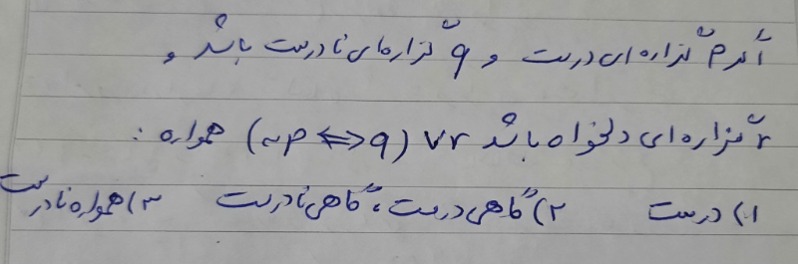 اگر "p" گزاره‌ای درست و "q" گزاره‌ای نادرست باشد و
"r" گزاره‌ای دلخواه باشد (~p ⇔ q) ∨ r همواره :
۱) درست ۲) گاهی درست، گاهی نادرست ۳) همواره نادرست